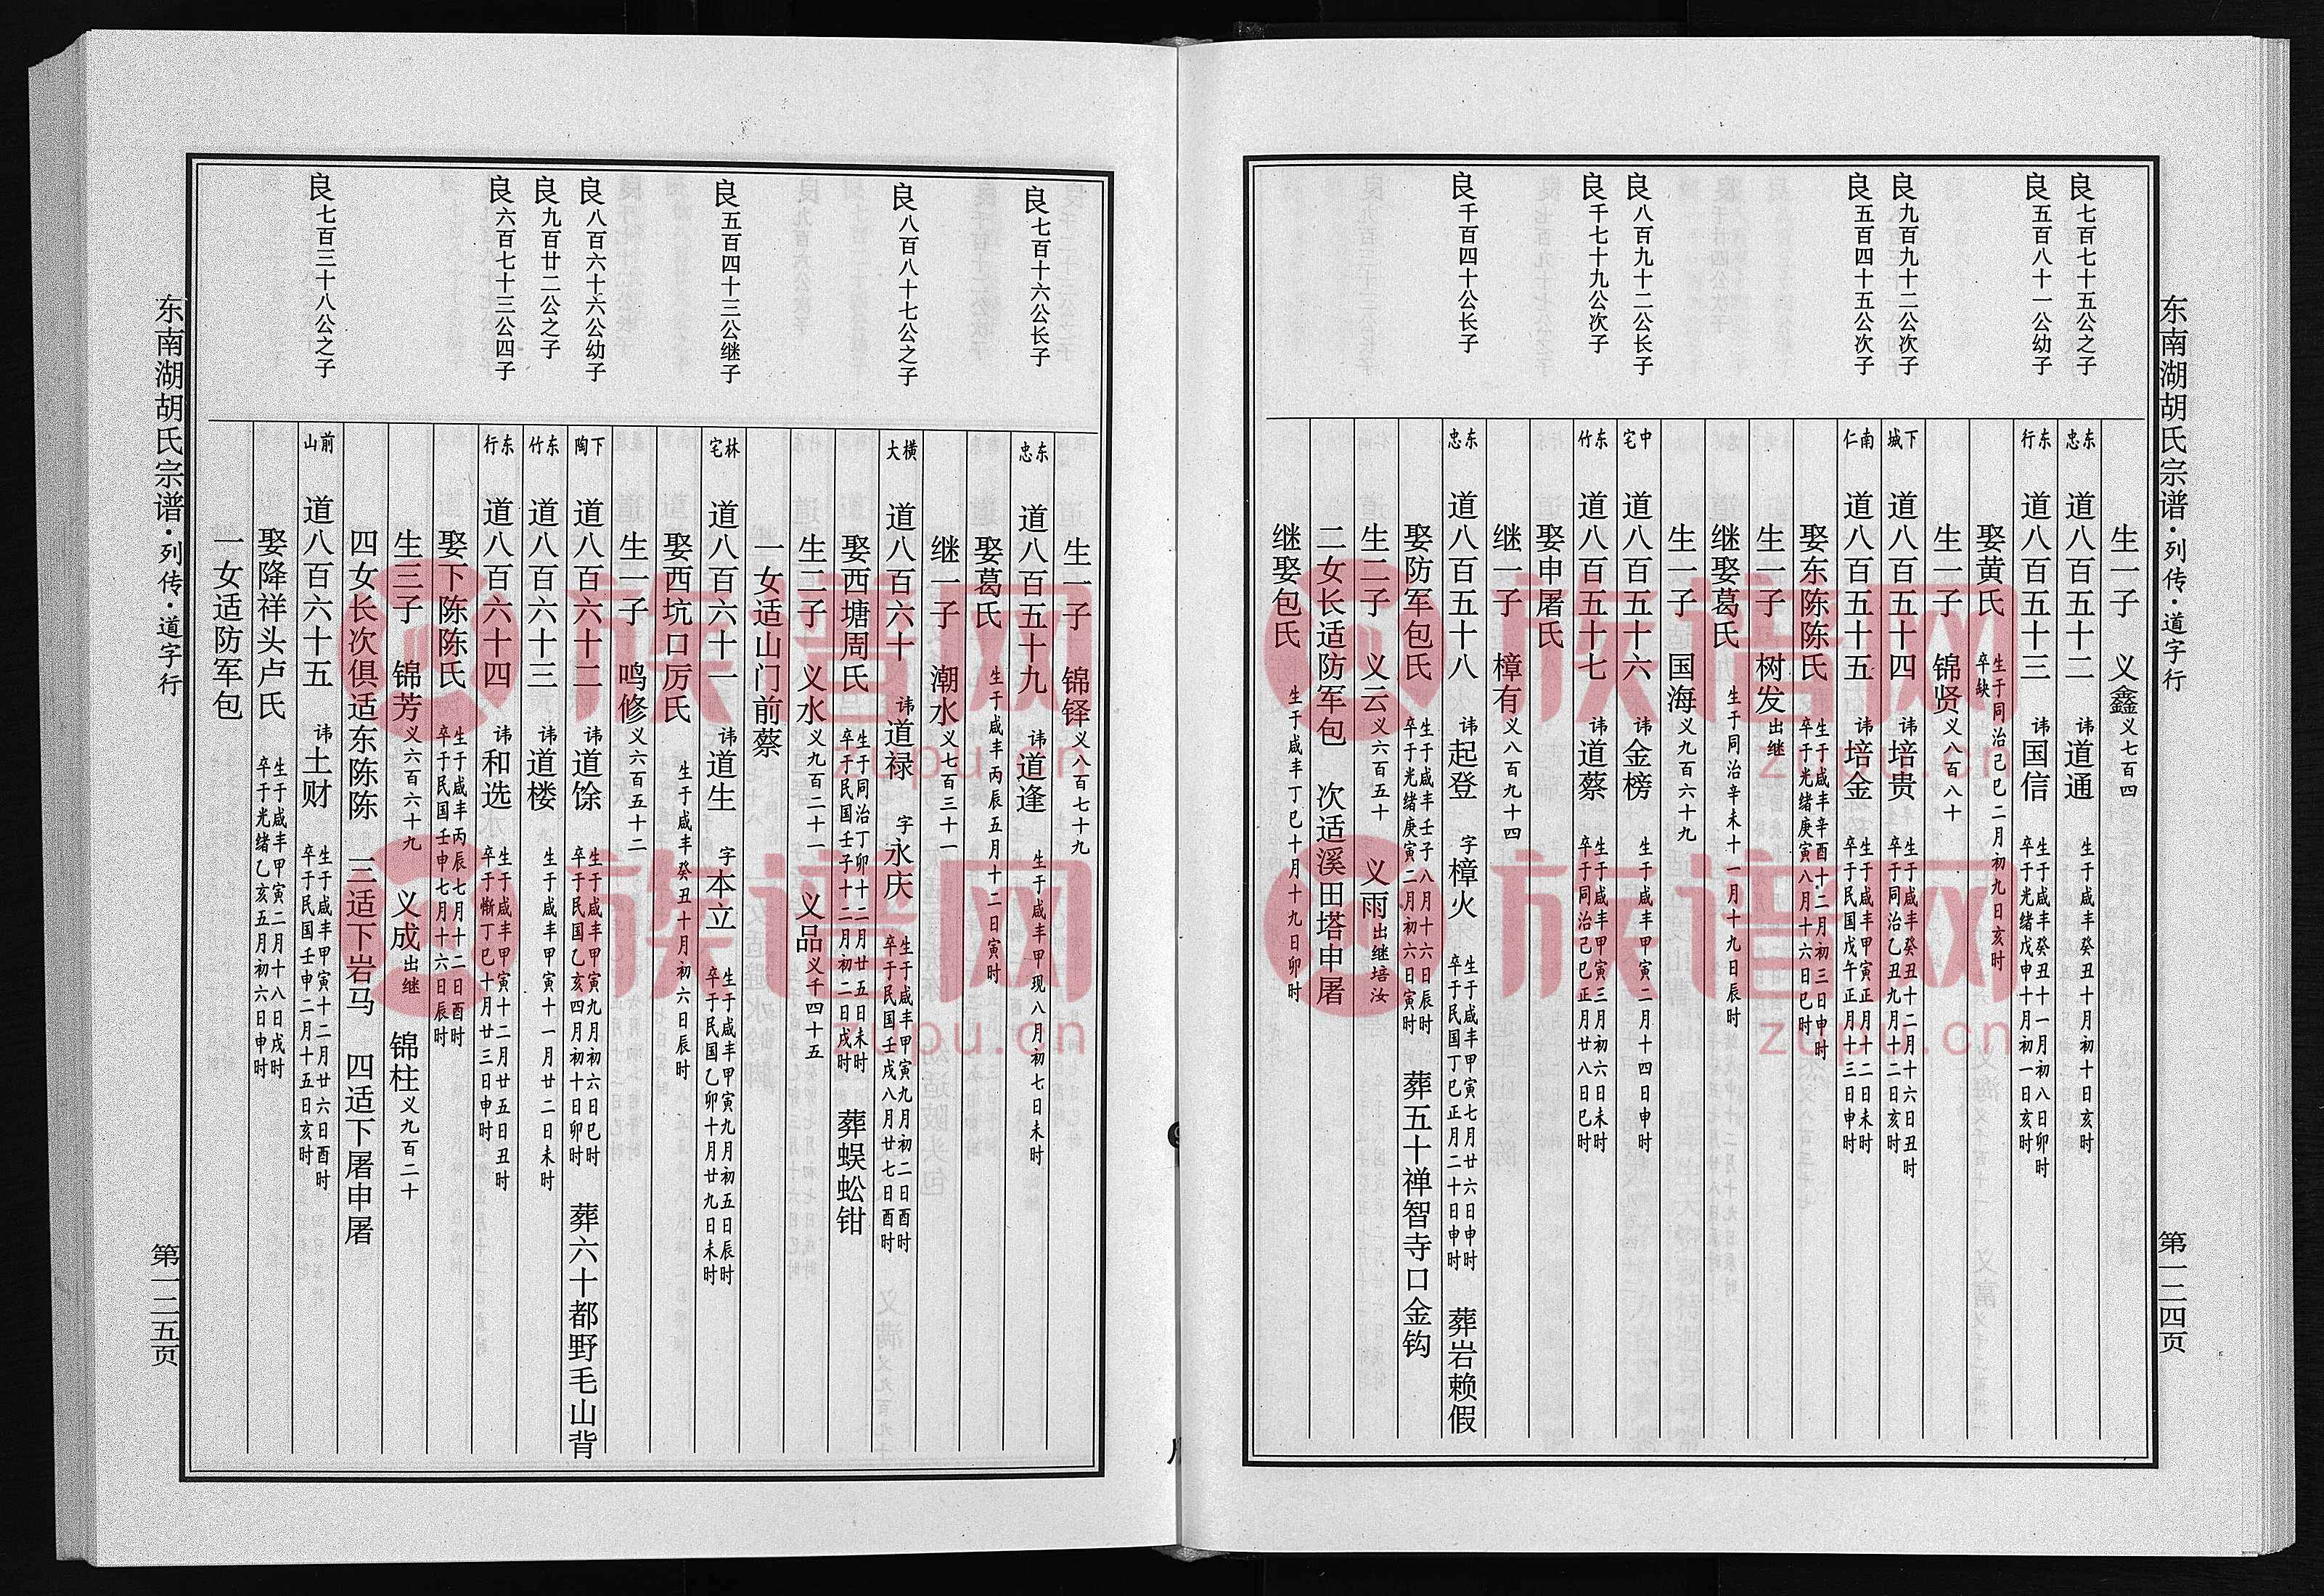 东南湖胡氏宗谱·列传·道字行
第一二四页
生一子 义鑫 义七百四
良七百七十五公之子 东忠 道八百五十二 讳道通 生于咸丰癸丑十月初十日亥时
良五百八十一公幼子 东行 道八百五十三 讳国信 生于咸丰癸丑十一月初八日卯时 卒于光绪戊申十月初一日亥时
娶黄氏 生于同治己巳二月初九日亥时 卒缺
生一子 锦贤 义八百八十
良九百九十二公次子 下城 道八百五十四 讳培贵 生于咸丰癸丑十二月十六日丑时 卒于同治乙丑九月十二日亥时
良五百四十五公次子 南仁 道八百五十五 讳培金 生于咸丰甲寅正月十二日亥时 卒于民国戊午正月十三日申时
娶东陈陈氏 生于咸丰辛酉十二月初三日申时 卒于光绪庚寅八月十六日巳时
生一子 树发 出继
继娶葛氏 生于同治辛未十一月十九日辰时
生一子 国海 义九百六十九
良八百九十二公长子 中宅 道八百五十六 讳金榜 生于咸丰甲寅二月十四日申时
良千七十九公次子 东竹 道八百五十七 讳道蔡 生于咸丰甲寅三月初六日未时 卒于同治己巳正月廿八日巳时
娶申屠氏
继一子 樟有 义八百九十四
良千百四十公长子 东忠 道八百五十八 讳起登 字樟火 生于咸丰甲寅七月廿六日申时 卒于民国丁巳正月二十日申时 葬岩赖假
娶防军包氏 生于咸丰壬子八月十六日辰时 卒于光绪庚寅二月初六日寅时 葬五十禅智寺口金钩
生二子 义云 义六百五十 义雨 出继培汝
二女长适防军包 次适溪田塔申屠
继娶包氏 生于咸丰丁巳十月十九日卯时
生一子 锦铎 义八百七十九
良七百十六公长子 东忠 道八百五十九 讳道逢 生于咸丰甲现八月初七日未时
娶葛氏 生于咸丰丙辰五月十二日寅时
继一子 潮水 义七百三十一
良八百八十七公之子 横大 道八百六十 讳道禄 字永庆 生于咸丰甲寅九月初二日酉时 卒于民国壬戌八月廿七日酉时
娶西塘周氏 生于同治丁卯十二月廿五日未时 卒于民国壬子十二月初二日戌时 葬蜈蚣钳
生二子 义水 义九百二十一 义品 义千四十五
一女适山门前蔡
良五百四十三公继子 林宅 道八百六十一 讳道生 字本立 生于咸丰甲寅九月初五日辰时 卒于民国乙卯十月廿九日未时
娶西坑口厉氏 生于咸丰癸丑十月初六日辰时
生一子 鸣修 义六百五十二
良八百六十六公幼子 下陶 道八百六十二 讳道馀 生于咸丰甲寅九月初六日巳时 卒于民国乙亥四月初十日卯时 葬六十都野毛山背
良九百廿二公之子 东竹 道八百六十三 讳道楼 生于咸丰甲寅十一月廿二日未时
良六百七十三公四子 东行 道八百六十四 讳和选 生于咸丰甲寅十二月廿五日丑时 卒于惭丁巳十月廿三日申时
娶下陈陈氏 生于咸丰丙辰七月十二日酉时 卒于民国壬申七月十六日辰时
生三子 锦芳 义六百六十九 义成 出继 锦柱 义九百二十
四女长次俱适东陈陈 三适下岩马 四适下屠申屠
良七百三十八公之子 前山 道八百六十五 讳土财 生于咸丰甲寅十二月廿六日酉时 卒于民国壬申二月十五日亥时
娶降祥头卢氏 生于咸丰甲寅二月十八日戌时 卒于光绪乙亥五月初六日申时
一女适防军包
东南湖胡氏宗谱·列传·道字行
第一二五页
族谱网
zupu.cn
族谱网
zupu.cn
族谱网
zupu.cn
族谱网
zupu.cn